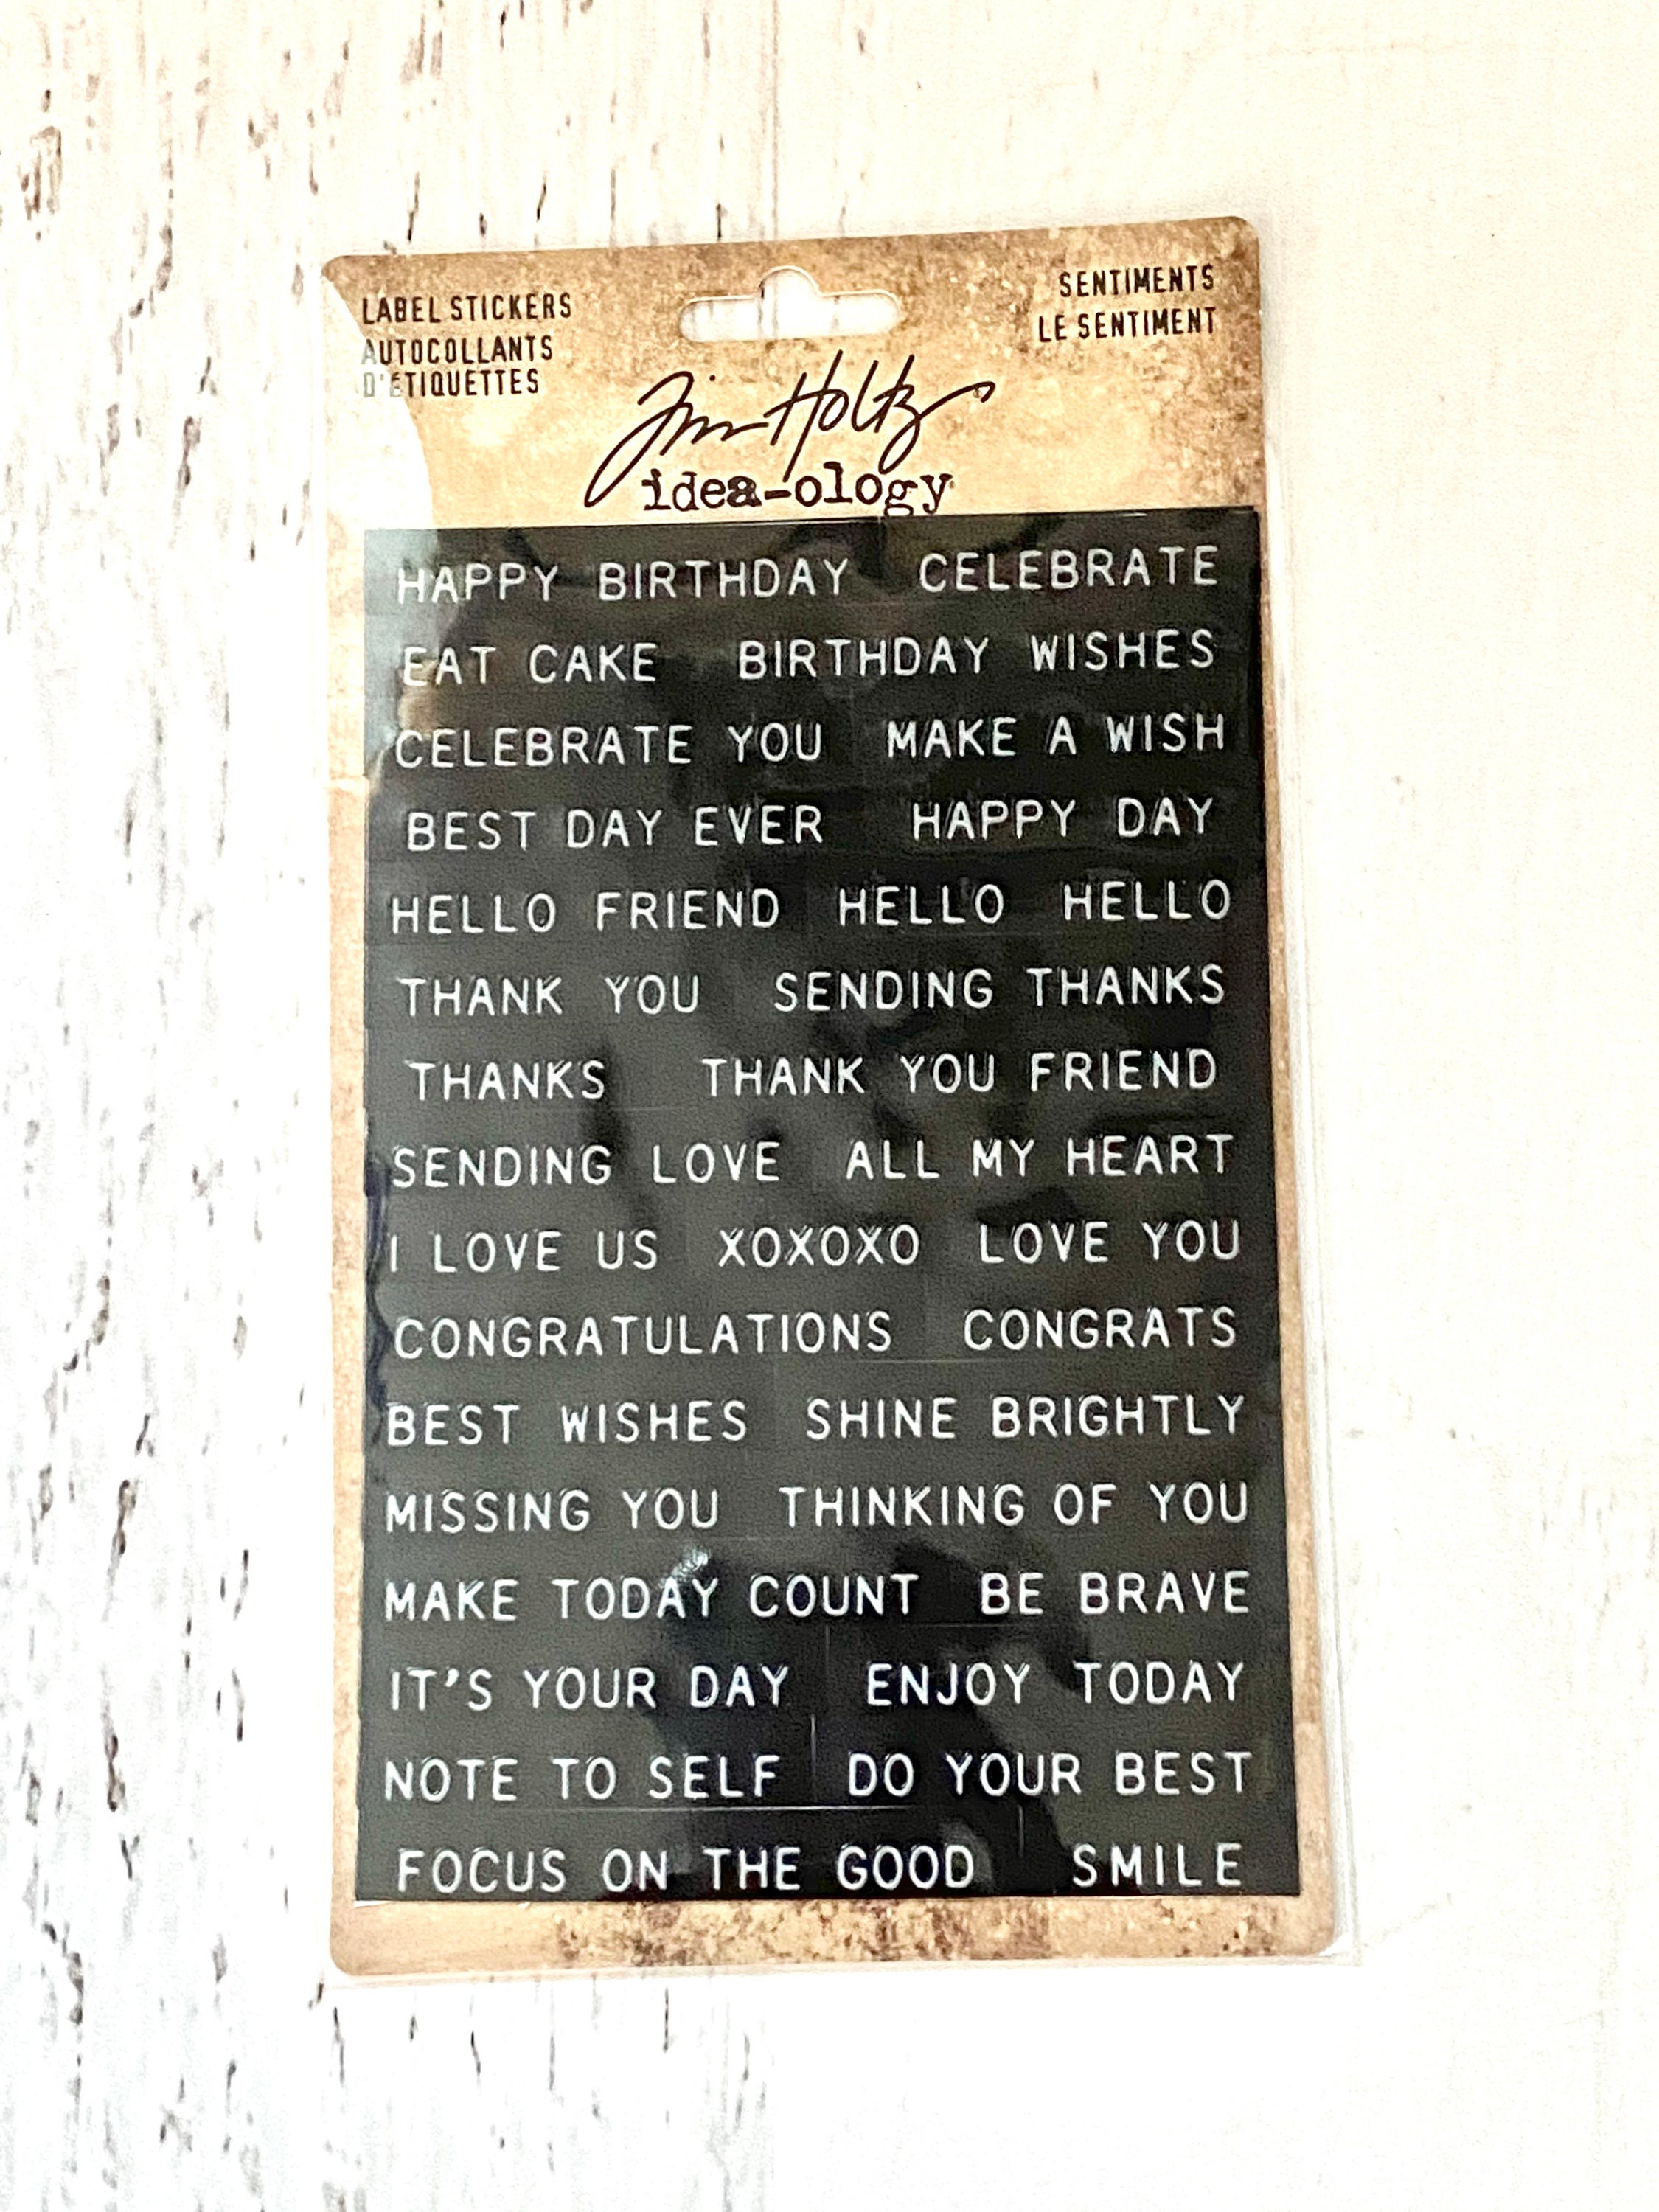 LABEL STICKERS
AUTOCOLLANTS
D'ÉTIQUETTES
SENTIMENTS
LE SENTIMENT
Tim Holtz
idea-ology
HAPPY BIRTHDAY CELEBRATE
EAT CAKE BIRTHDAY WISHES
CELEBRATE YOU MAKE A WISH
BEST DAY EVER HAPPY DAY
HELLO FRIEND HELLO HELLO
THANK YOU SENDING THANKS
THANKS THANK YOU FRIEND
SENDING LOVE ALL MY HEART
I LOVE US XOXOXO LOVE YOU
CONGRATULATIONS CONGRATS
BEST WISHES SHINE BRIGHTLY
MISSING YOU THINKING OF YOU
MAKE TODAY COUNT BE BRAVE
IT'S YOUR DAY ENJOY TODAY
NOTE TO SELF DO YOUR BEST
FOCUS ON THE GOOD SMILE